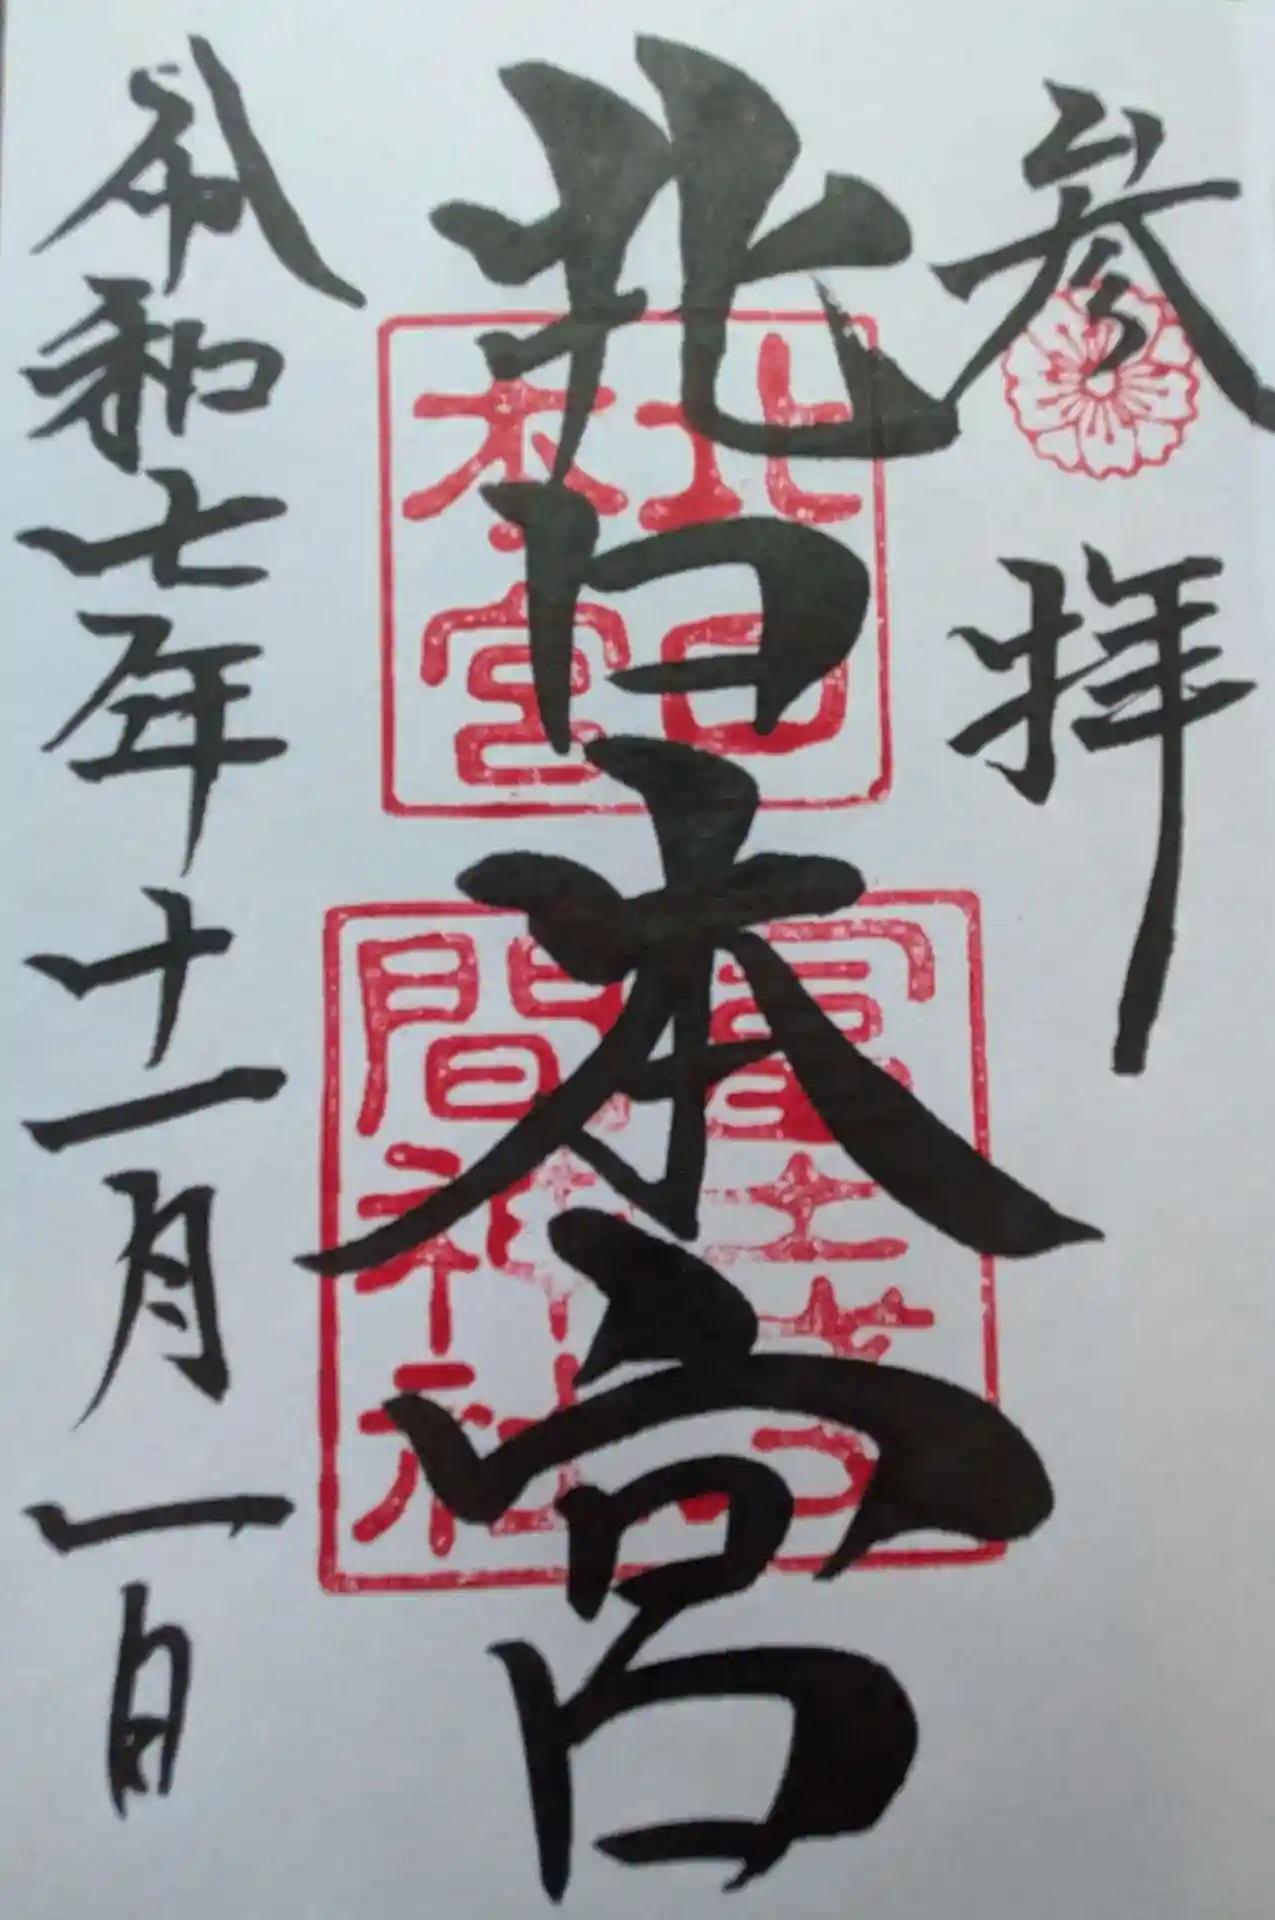 参拝
北口本宮
北口
本宮
富士浅
間神社
令和七年十一月一日